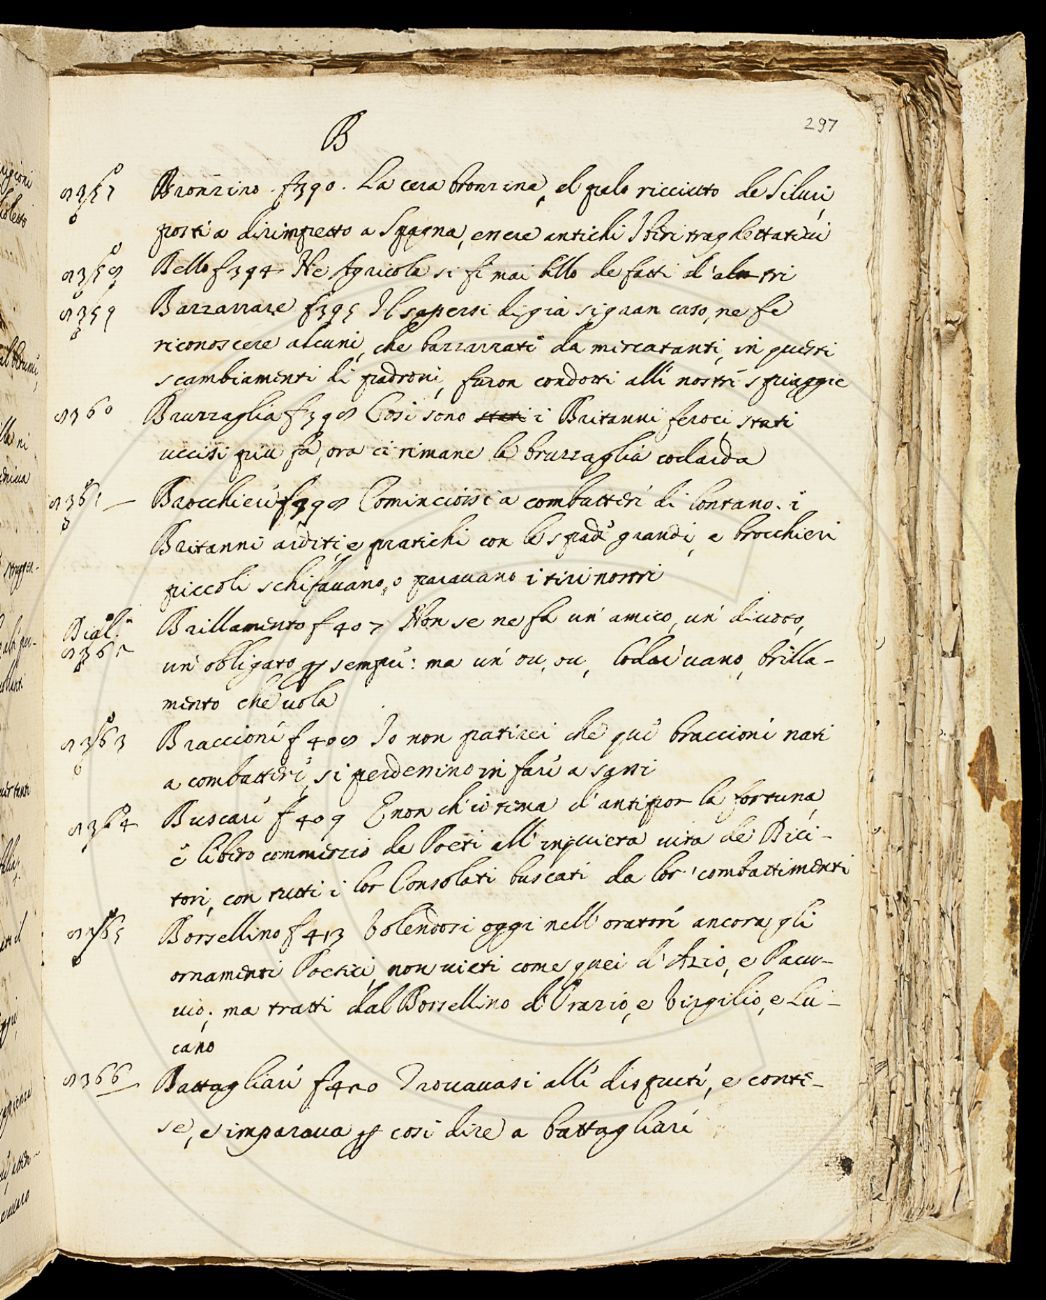 297
B
2357 Bronzino. f390. La cera bronzina, el pelo ricciuto de Siluri,
posti a dirimpetto a Spagna, essere antichi Iberi traghettativi
2358 Bello f394 Ne Agricola si fe mai bello de fatti d'altri
2359 Barzarrare f395 Il sapersi di già sì gran caso, ne fe
riconoscere alcuni, che barzarrati da mercatanti, in questi
scambiamenti di padroni, furon condotti alli nostri spiaggie
2360 Bruzzaglia f398 Così sono stati i Britanni feroci stati
uccisi più fà, ora ci rimane la bruzzaglia codarda
2361 Brocchieri f398 Cominciossi a combatteri di lontano. i
Britanni arditi, e pratichi con le spade grandi, e brocchieri
piccoli schifavano, o paravano i tiri nostri
Dial.
2362 Brillamento f407 Non se ne fa un' amico, un' divoto,
un' obligato p sempri: ma un' ou, ou, brilla-
mento che vola
2363 Braccioni f408 Io non patirei che più braccioni nati
a combatteri, si perdessino in fari a sassi
2364 Buscari f409 E non ch'io tema d'antipor la fortuna,
e libero commerzio de Poeti all' inquieta vita de Dici-
tori, con tutti i lor Consolati buscati da lor' combattimenti
2365 Borsellino f413 Volendosi oggi nell'oratori ancora gli
ornamenti Poetici, non vieti come quei d'Azio, e Pacu-
vio; ma tratti dal Borsellino d'Orazio, e Virgilio, e Lu-
cano
2366 Battagliari f420 Trovavasi alli disputi, e conte-
se, e imparava p così dire a battagliari